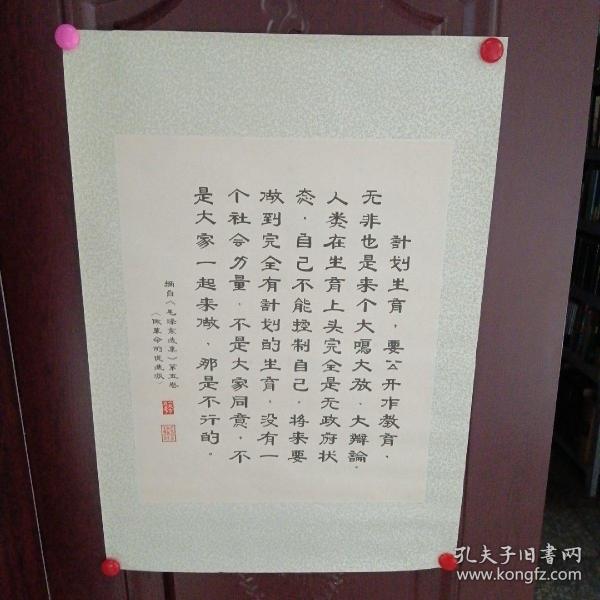 計划生育，要公开作教育，
无非也是来个大鳴大放、大辯論。
人类在生育上头完全是无政府状
态，自己不能控制自己。将来要
做到完全有計划的生育，没有一
个社会力量，不是大家同意，不
是大家一起来做，那是不行的。
摘自《毛泽东选集》第五卷
《做革命的促進派》
孔夫子旧书网
www.kongfz.com